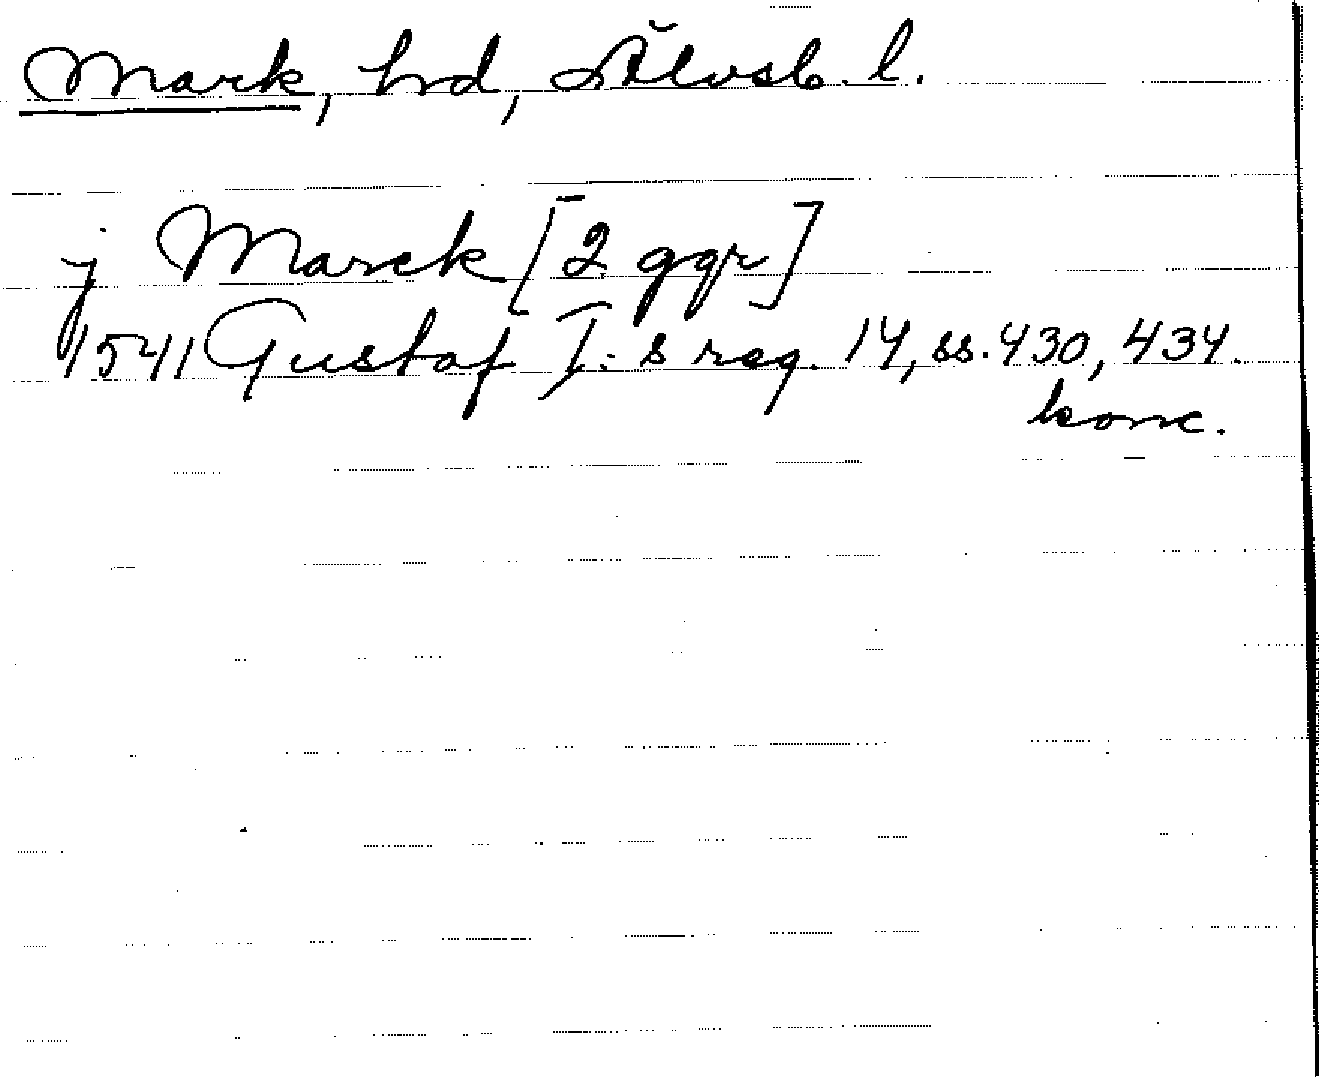 Mark, hd, Älvsb. l.
j Marck [2 ggr]
1541 Gustaf I:s reg. 14, ss. 430, 434.
konc.